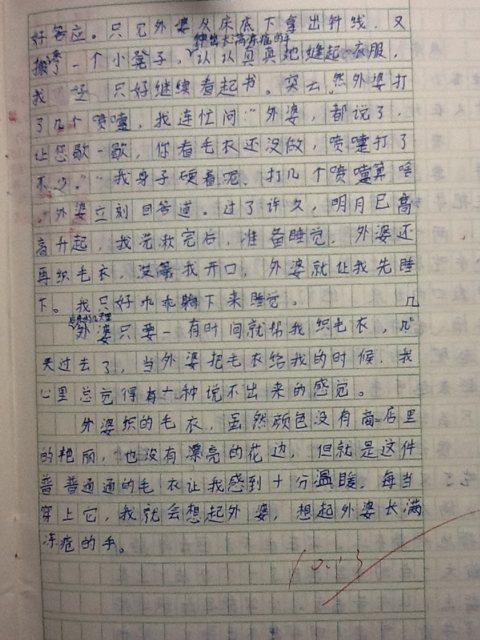 好答应。只见外婆从床底下拿出针线，又
伸出长满冻疮的手
搬了一个小凳子，认认真真地缝起衣服，
我 只好继续看起书。突 然外婆打
了几个喷嚏，我连忙问："外婆，都说了，
让您歇一歇，你看毛衣还没做，喷嚏打了
不少。""我身子硬着呢，打几个喷嚏算啥
。"外婆立刻回答道。过了许久，明月已高
高升起，我洗漱完后，准备睡觉，外婆还
再织毛衣，没等我开口，外婆就让我先睡
下。我只好乖乖躺下来睡觉。
外婆只要一有时间就帮我织毛衣，几
天过去了，当外婆把毛衣给我的时候，我
心里总觉得有一种说不出来的感觉。
外婆织的毛衣，虽然颜色没有商店里
的艳丽，也没有漂亮的花边，但就是这件
普普通通的毛衣让我感到十分温暖。每当
穿上它，我就会想起外婆，想起外婆长满
冻疮的手。
10.13